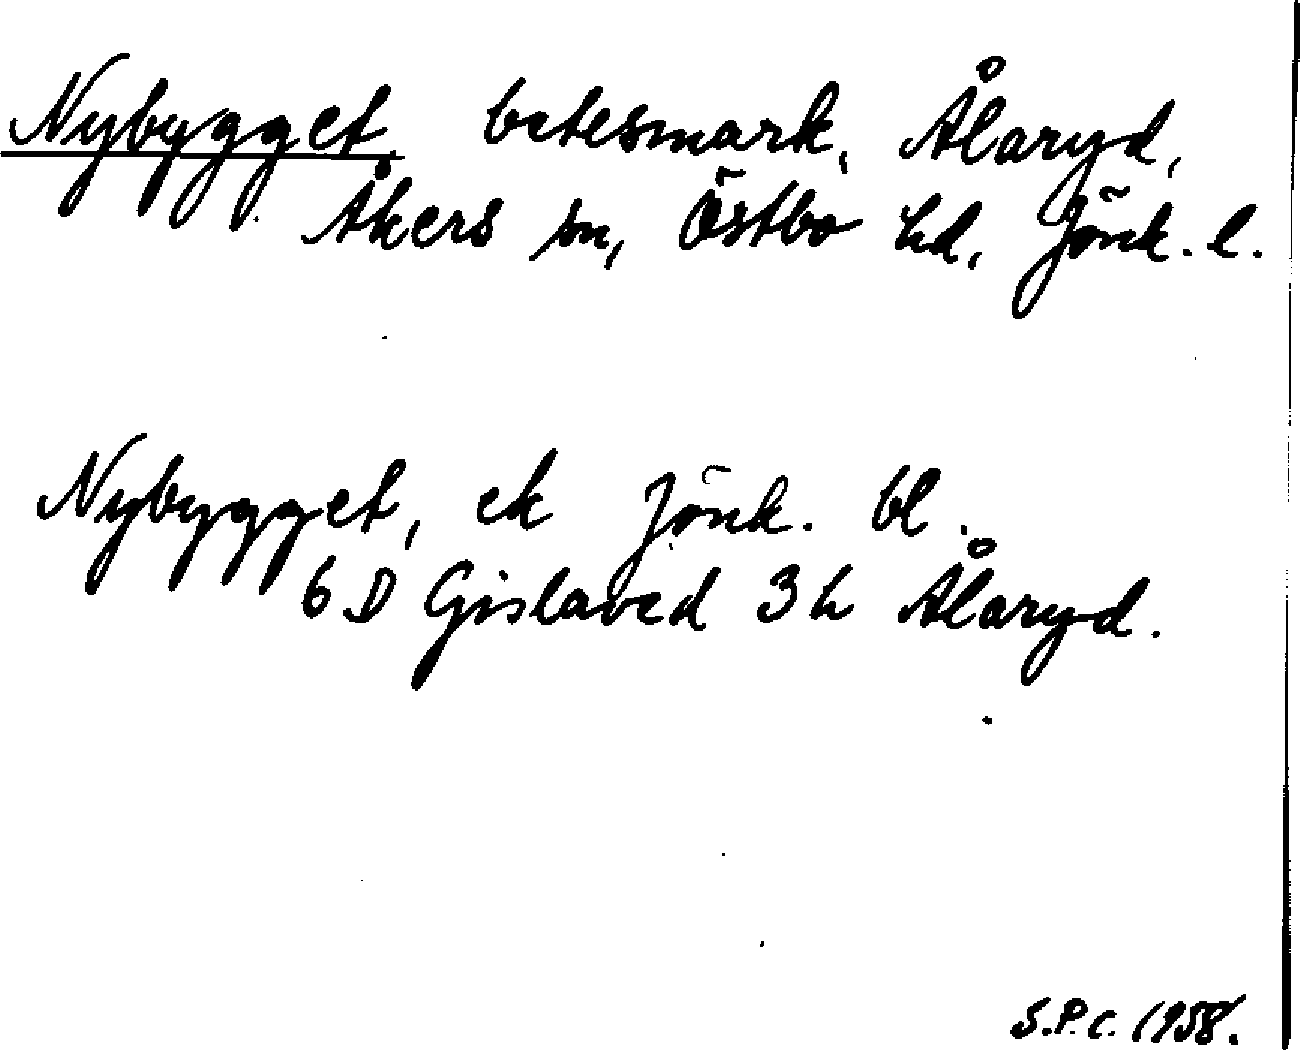 Nybygget, betesmark, Ålaryd,
Åkers sn, Östbo hd, Jönk. l.
Nybygget, ek Jönk. bl.
6 D Gislaved 3 h Ålaryd.
S.P.C. 1958.